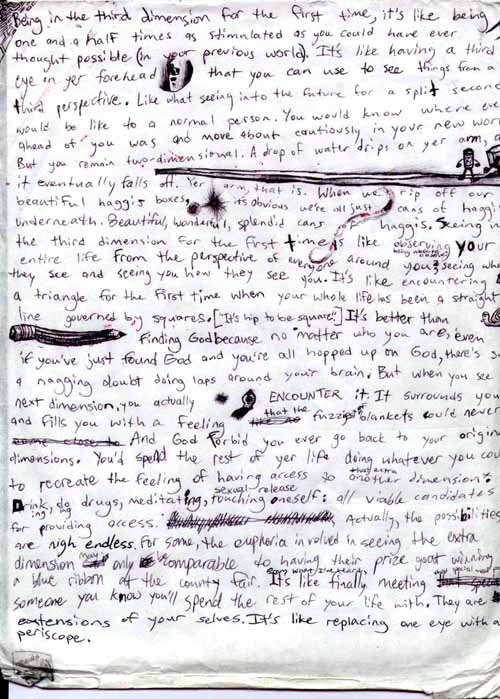 Being in the third dimension for the first time, it's like being
one and a half times as stimulated as you could have ever
thought possible (in your previous world). It's like having a third
eye in yer forehead that you can use to see things from a
third perspective. Like what seeing into the future for a split second
would be like to a normal person. You would know where
ahead of you was and move about cautiously in your new
But you remain two-dimensional. A drop of water drips on yer arm,
it eventually falls off. Yer arm, that is. When we rip off our
beautiful haggis boxes, it's obvious we're all just cans of
underneath. Beautiful, wonderful, splendid cans of haggis. Seeing
the third dimension for the first time is like observing your
entire life from the perspective of everyone around you & seeing
they see and seeing you how they see you. It's like encountering
a triangle for the first time when your whole life has been a straight
line governed by squares. ["It's hip to be square".] It's better than
finding God because no matter who you are, even
if you've just found God and you're all hopped up on God, there's
a nagging doubt doing laps around your brain. But when you see
next dimension, you actually ENCOUNTER it. It surrounds you
and fills you with a feeling that the fuzziest blankets could never
And God forbid you ever go back to your
dimensions. You'd spend the rest of yer life doing whatever you
to recreate the feeling of having access to that extra dimension:
Drinking, drugs, meditating, sexual-release touching oneself: all viable candidates
for providing access. Actually, the
are nigh endless. For some, the euphoria involved in seeing the extra
dimension may only be comparable to having their prize goat winning
a blue ribbon at the county fair. It's like finally meeting
someone you know you'll spend the rest of your life with. They are
extensions of your selves. It's like replacing one eye with a
periscope.